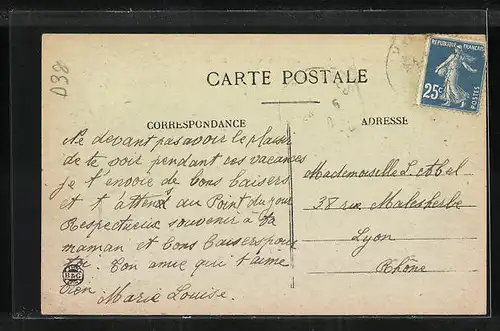 D38
CARTE POSTALE
RÉPUBLIQUE FRANÇAISE
25c
POSTES
CORRESPONDANCE
ADRESSE
Ne devant pas avoir le plaisir
de te voir pendant ces vacances
je t'envoie de bons baisers
et t'attend au Point du jour
Respectueux souvenir à ta
maman et bons baisers pour
toi. Ton amie qui t'aime
bien
Marie Louise.
B&G
Mademoiselle L. Abel
38 rue Malesherbe
Lyon
Rhône